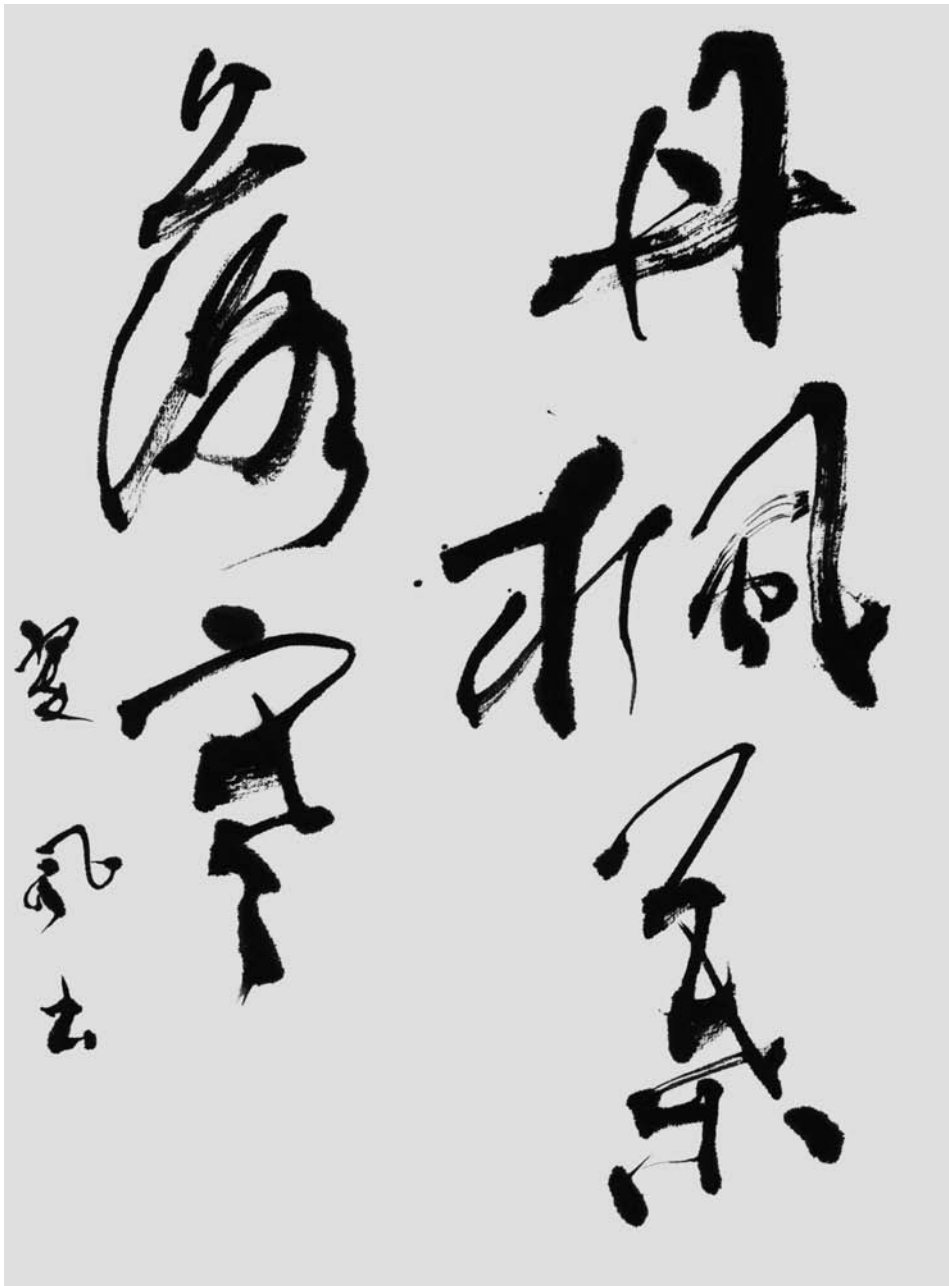 丹楓葉
寒
翠風書